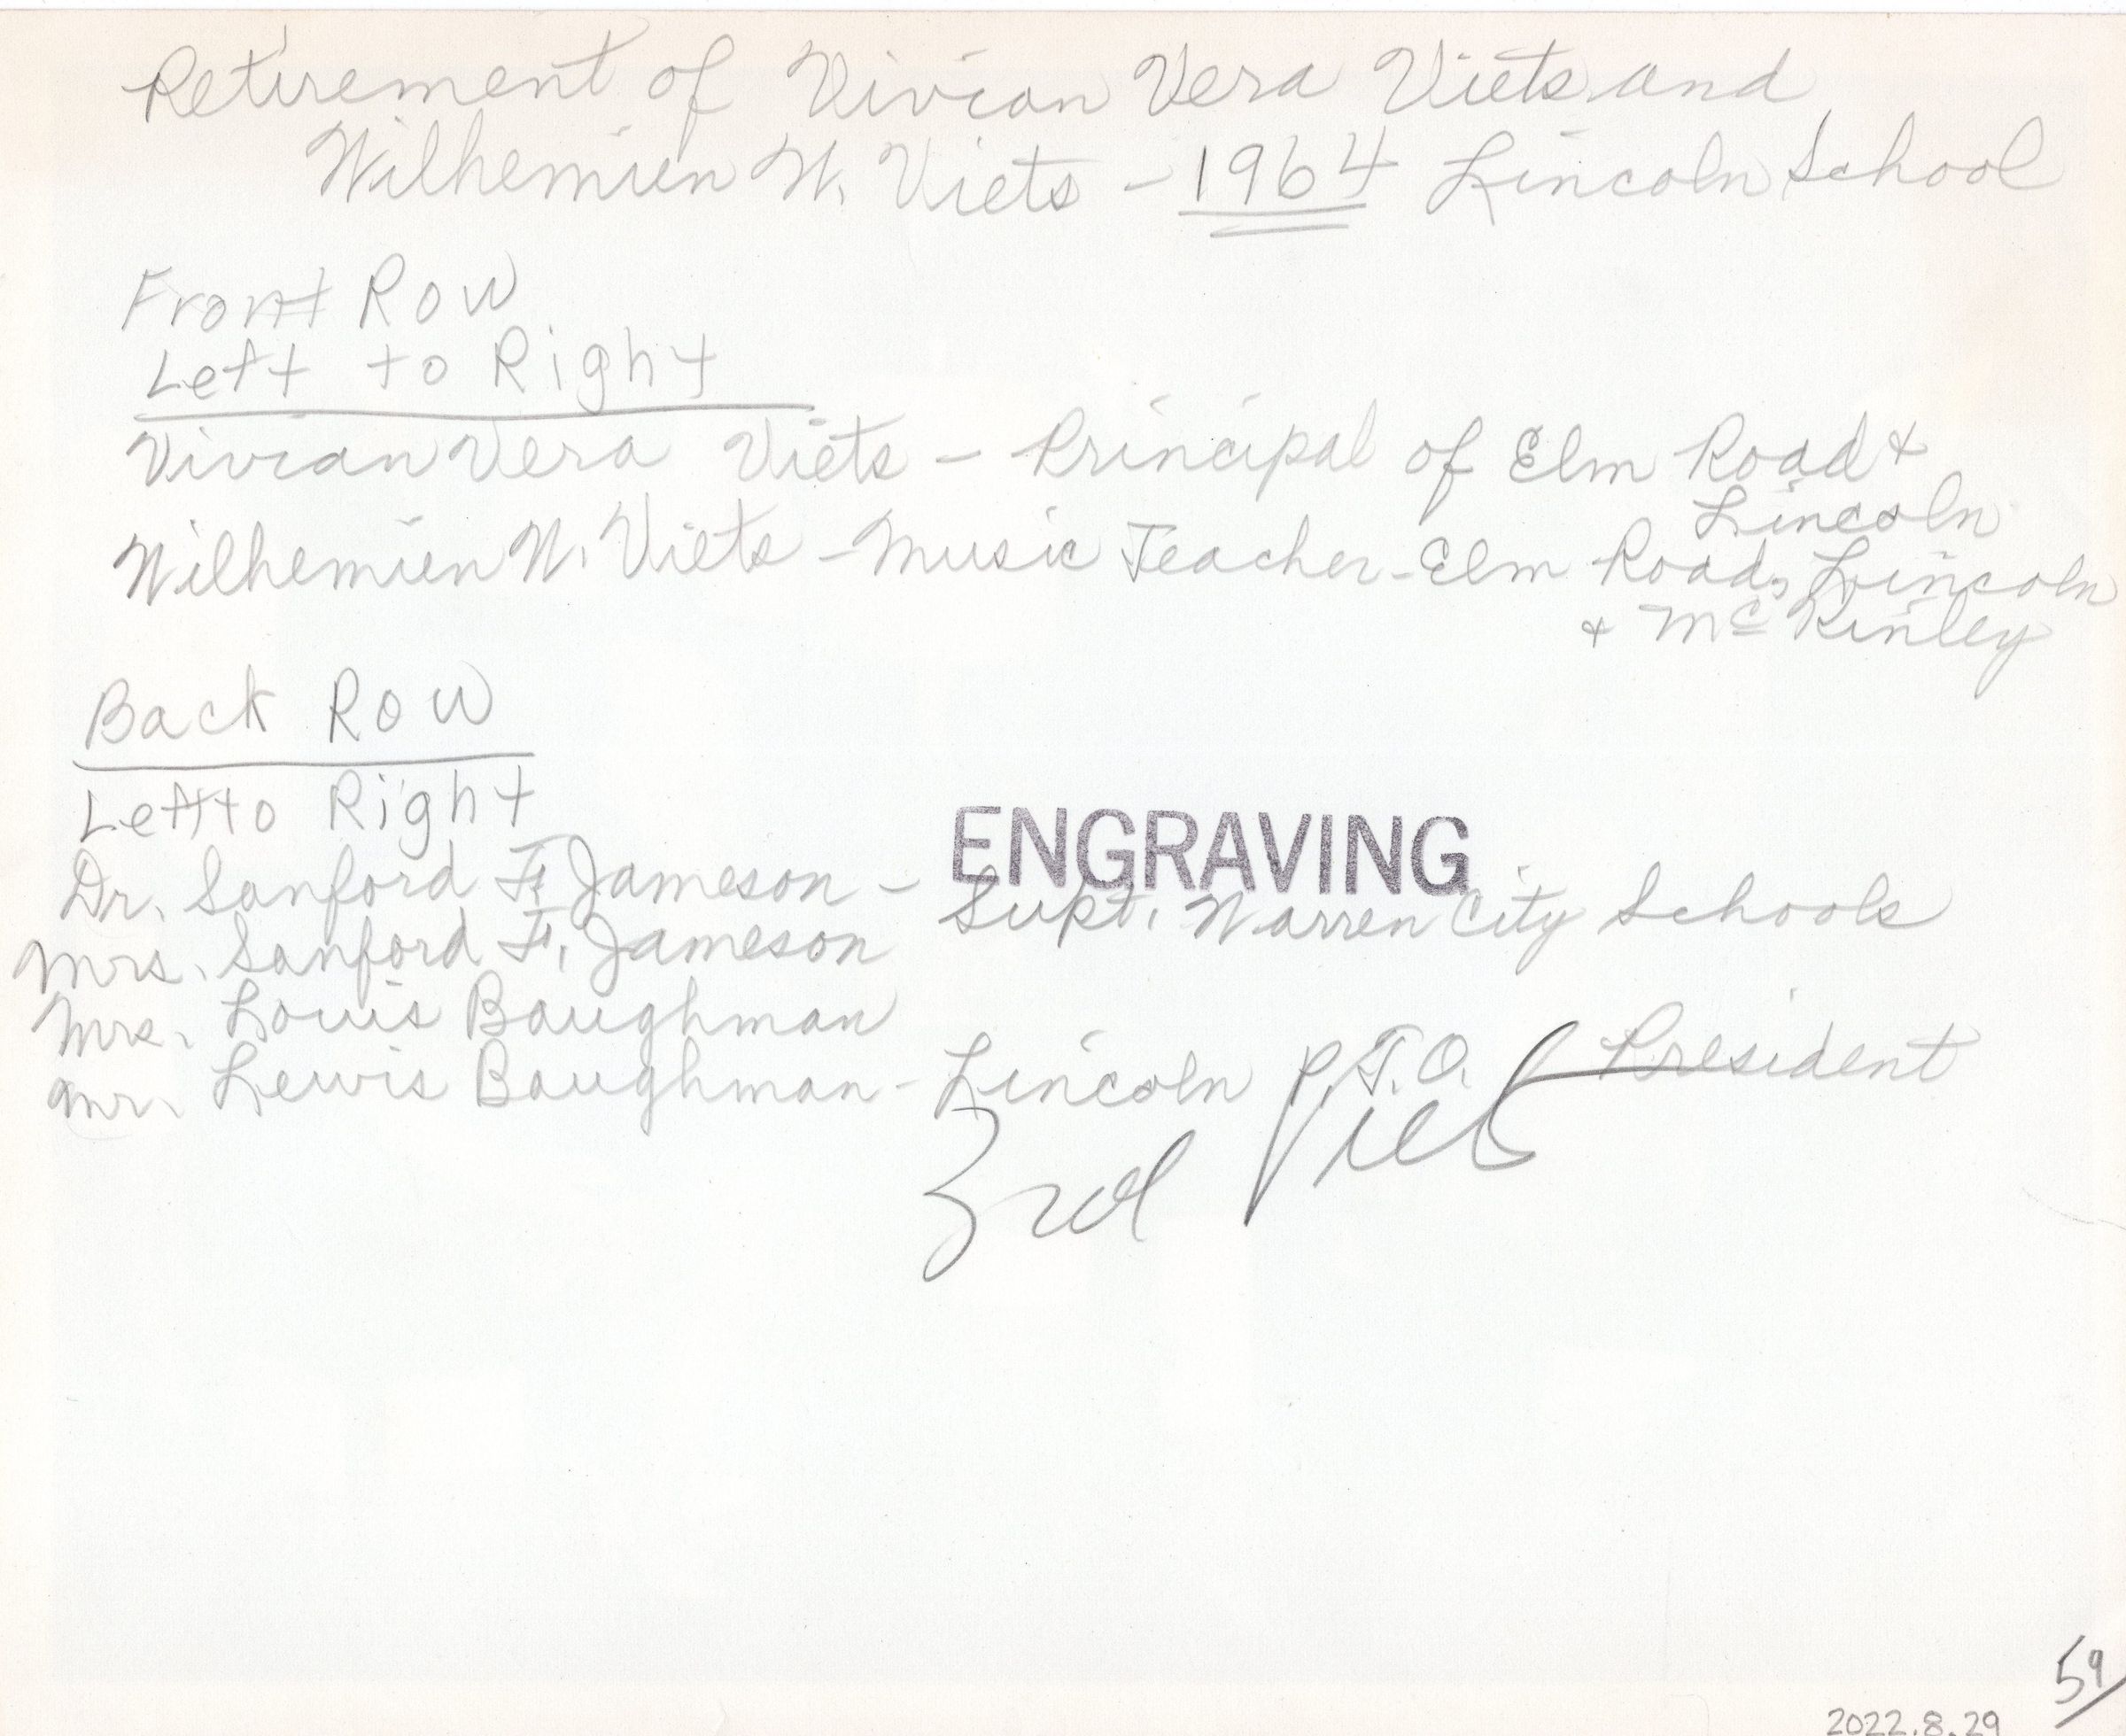 Retirement of Vivian Vera Viets and
Wilhemien W. Viets - 1964 Lincoln School
Front Row
Left to Right
Vivian Vera Viets - Principal of Elm Road &
Lincoln
Wilhemien W. Viets - Music Teacher - Elm Road, Lincoln
& McKinley
Back Row
Left to Right
ENGRAVING
Dr. Sanford F. Jameson - Supt. Warren City Schools
Mrs. Sanford F. Jameson
Mrs. Louis Baughman
Mr. Lewis Baughman - Lincoln P.T.O. President
3 col Viets
59
2022.8.29